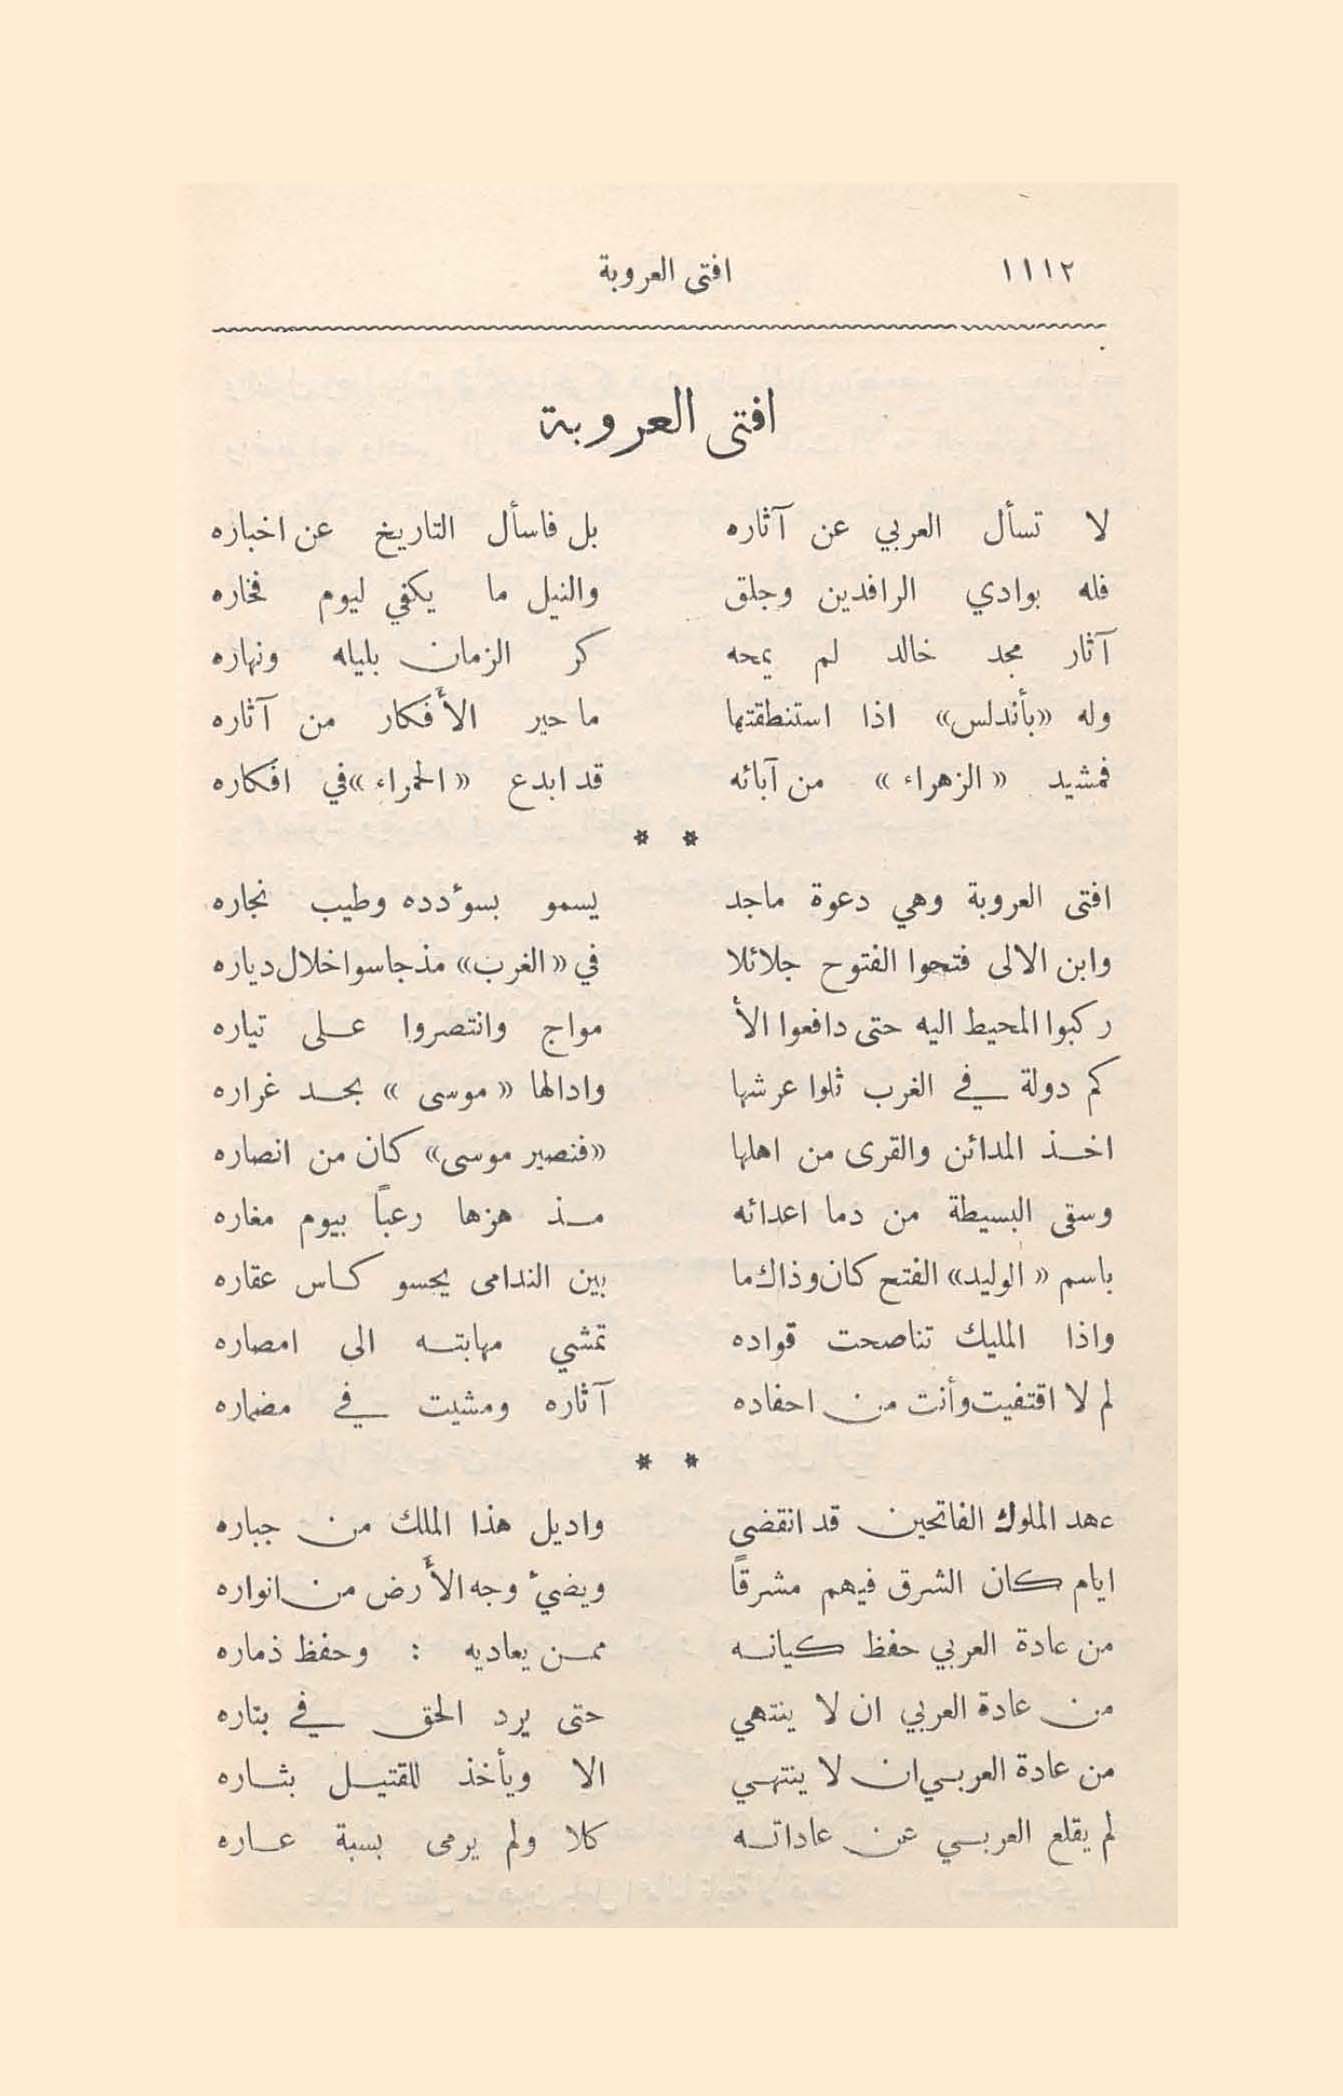 ١١١٢ افتى العروبة
افتى العروبة
لا تسأل العربي عن آثاره بل فاسأل التاريخ عن اخباره
فله بوادي الرافدين وجلق والنيل ما يكفي ليوم فخاره
آثار مجد خالد لم يمحه كر الزمان بليله ونهاره
وله «بأندلس» اذا استنطقتها ما حير الأفكار من آثاره
فمشيد «الزهراء» من آبائه قد ابدع «الحمراء» في افكاره
* *
افتى العروبة وهي دعوة ماجد يسمو بسوٴدده وطيب نجاره
وابن الالى فتحوا الفتوح جلائلا في «الغرب» مذ جاسوا خلال دياره
ركبوا المحيط اليه حتى دافعوا الأ مواج وانتصروا على تياره
كم دولة في الغرب ثلوا عرشها وادالها «موسى» بحد غراره
اخذ المدائن والقرى من اهلها «فنصير موسى» كان من انصاره
وسقى البسيطة من دما اعدائه مذ هزها رعباً بيوم مغاره
باسم «الوليد» الفتح كان وذاك ما بين الندامى يحسو كاس عقاره
واذا المليك تناصحت قواده تمشي مهابته الى امصاره
لم لا اقتفيت وأنت من احفاده آثاره ومشيت في مضماره
* *
عهد الملوك الفاتحين قد انقضى واديل هذا الملك من جباره
ايام كان الشرق فيهم مشرقاً ويضيٴ وجه الأرض من انواره
من عادة العربي حفظ كيانه ممن يعاديه : وحفظ ذماره
من عادة العربي ان لا ينتهي حتى يرد الحق في بتاره
من عادة العربي ان لا ينتهي الا ويأخذ للقتيل بثاره
لم يقلع العربي عن عاداته كلا ولم يرمى بسبة عاره